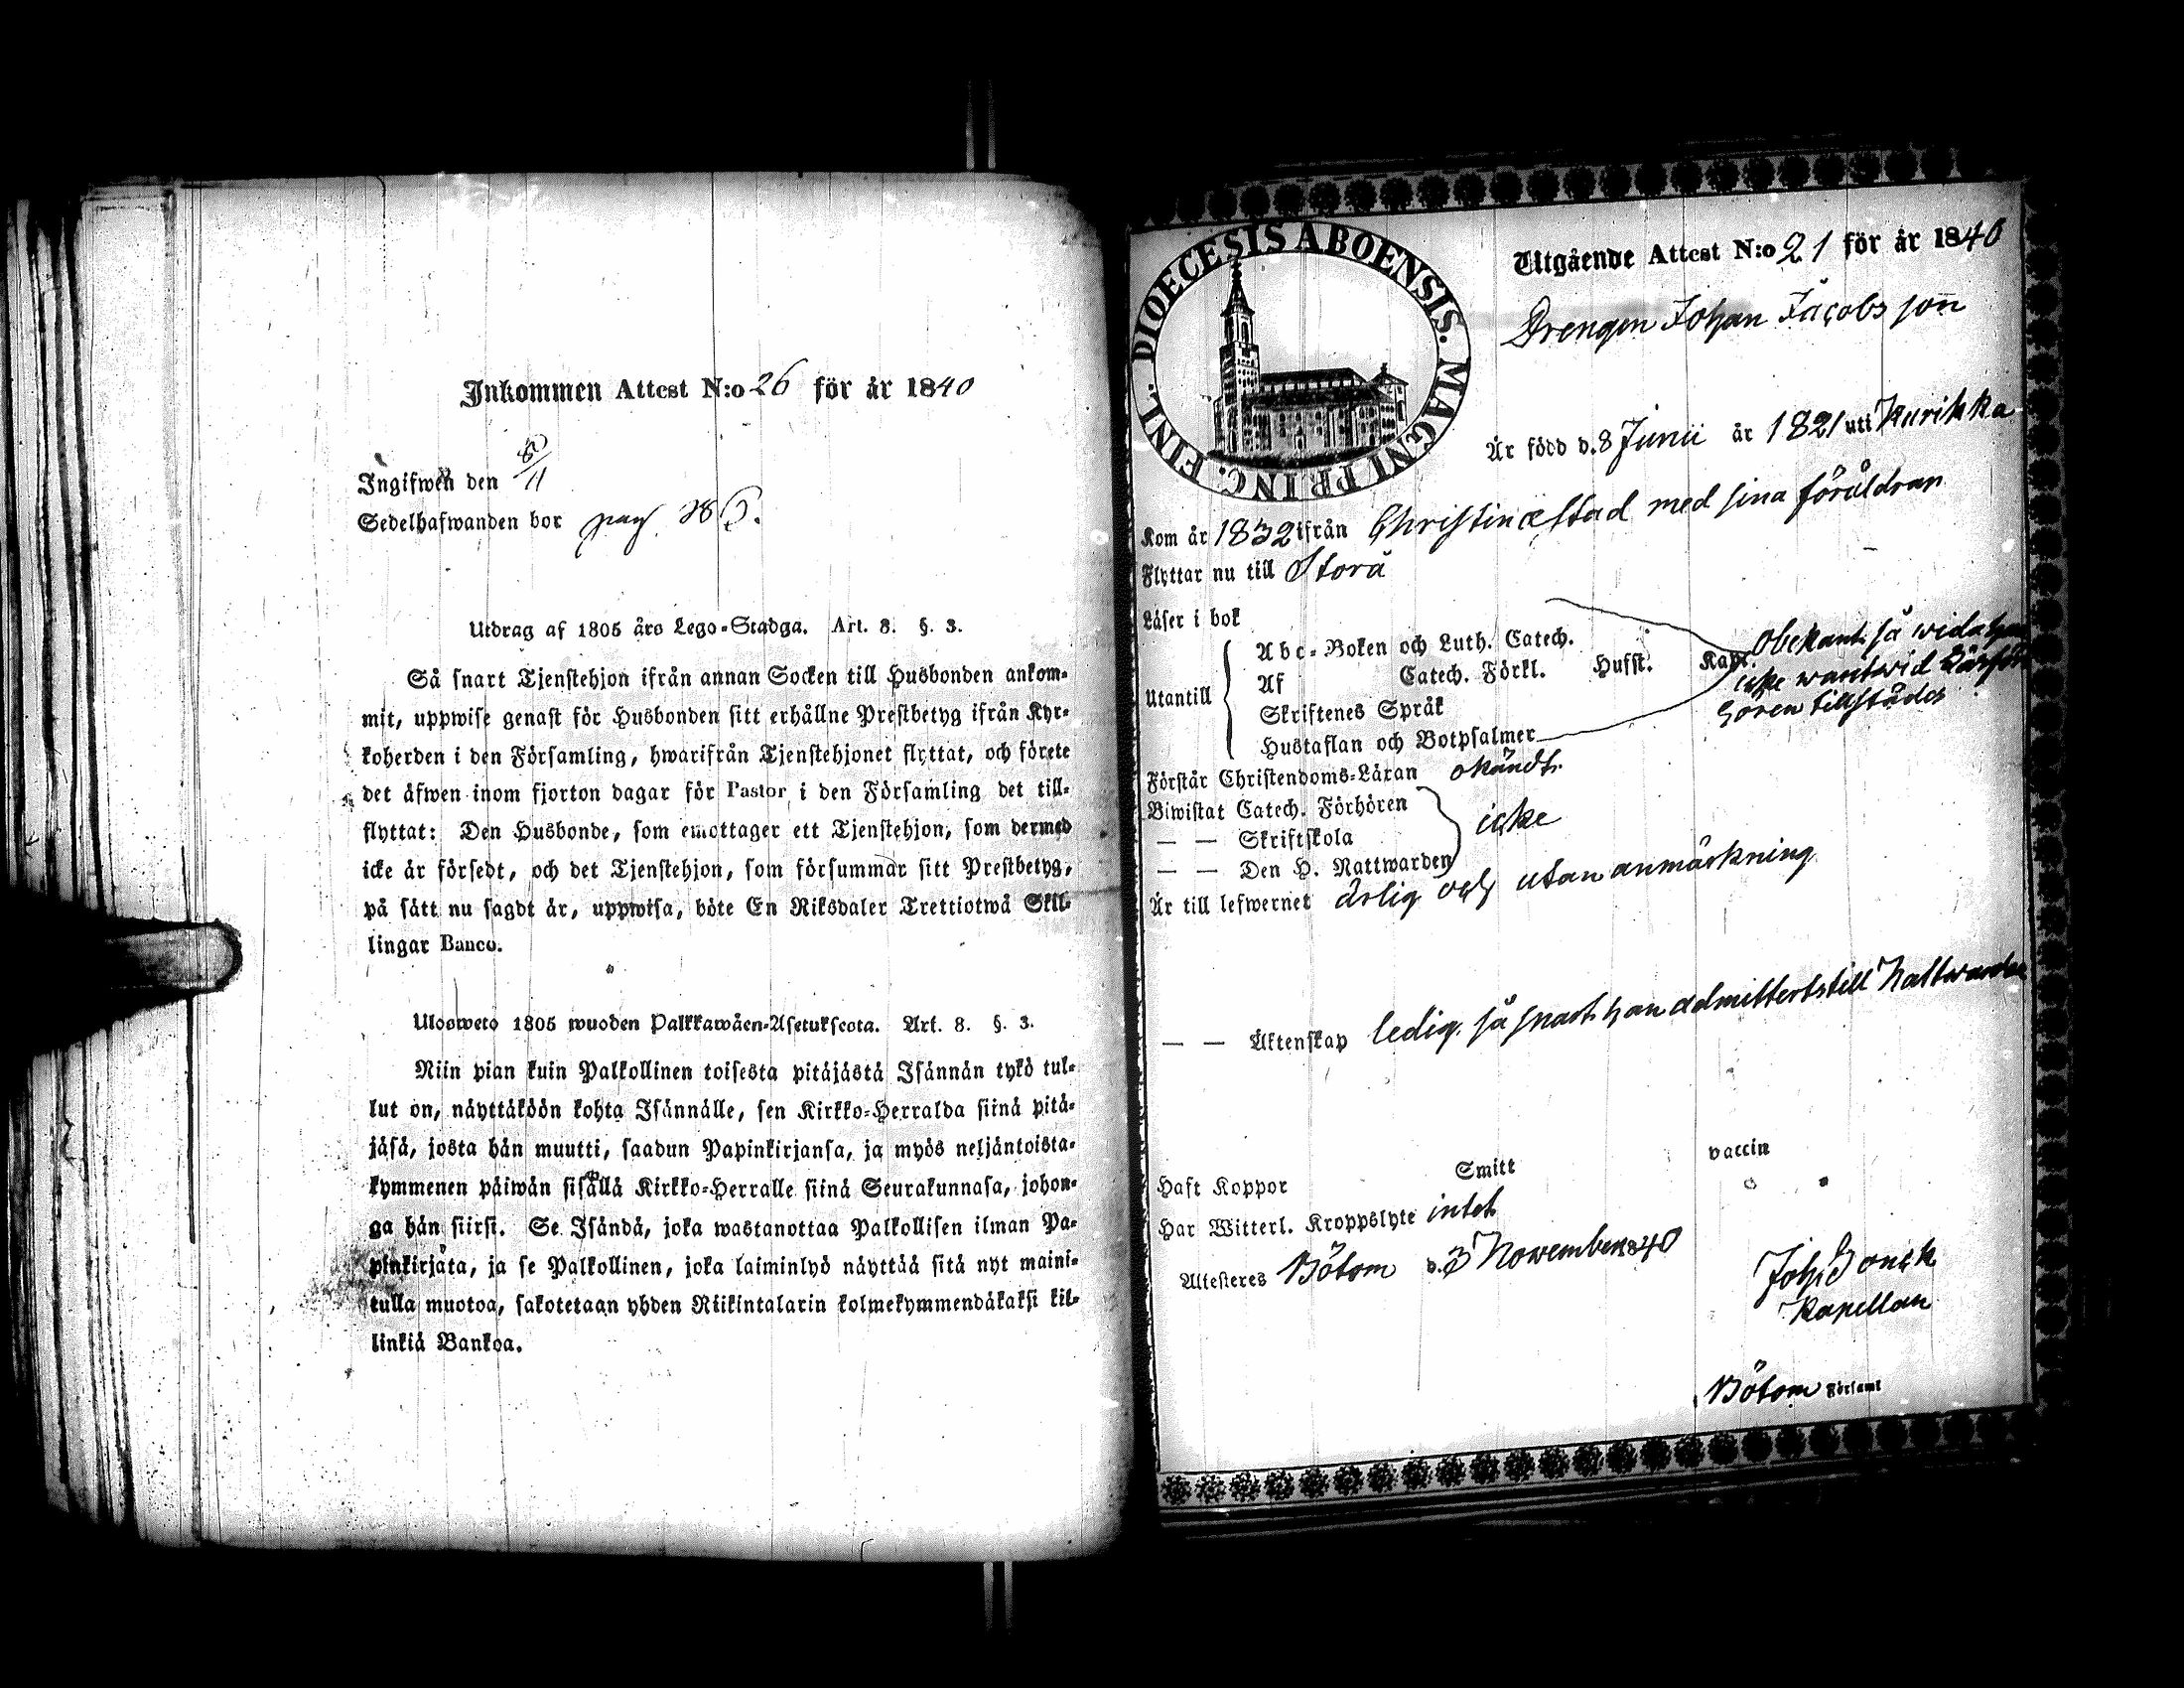 Inkommen Attest N:o 26 för år 1840
Ingifwen den 8/11
Sedelhafwanden bor pag 286.
Utdrag af 1805 års Lego-Stadga. Art. 8. §. 3.
Så snart Tjenstehjon ifrån annan Socken till Husbonden ankom-
mit, uppwise genast för Husbonden sitt erhållne Prestbetyg ifrån Kyr-
koherden i den Församling, hwarifrån Tjenstehjonet flyttat, och förete
det äfwen inom fjorton dagar för Pastor i den Församling det till-
flyttat: Den Husbonde, som emottager ett Tjenstehjon, som dermed
icke är försedt, och det Tjenstehjon, som försummar sitt Prestbetyg,
på sätt nu sagdt är, uppwisa, böte En Riksdaler Trettiotwå Skil-
lingar Banco.
Ulosweto 1805 wuoden Palkkawäen-Asetuksesta. Art. 8. §. 3.
Niin pian kuin Palkollinen toisesta pitäjästä Isännän tykö tul-
lut on, näyttäköön kohta Isännälle, sen Kirkko-Herralda siinä pitä-
jäsä, josta hän muutti, saadun Papinkirjansa, ja myös neljäntoista-
kymmenen päiwän sisällä Kirkko-Herralle siinä Seurakunnasa, johon-
ga hän siirsi. Se Isändä, joka wastanottaa Palkollisen ilman Pa-
pinkirjata, ja se Palkollinen, joka laiminlyö näyttää sitä nyt maini-
tulla muotoa, sakotetaan yhden Riikintalarin kolmekymmendäkaksi kil-
linkiä Bankoa.
DIOECESIS ABOENSIS. MAGNI PRINC. FINL.
Utgående Attest N:o 21 för år 1840
Drengen Johan Jacobsson
Är född d. 8 Junii år 1821 uti Kurikka
Kom år 1832 ifrån Christinæstad med sina föräldrar
Flyttar nu till Storå
Läser i bok
Utantill
Abc-Boken och Luth. Catech.
Af Catech. Förkl. Husst. Kap.
Skriftenes Språk
Hustaflan och Botpsalmer
obekant så wida han
icke warit wid Läsför
hören tillstådes
Förstår Christendoms-Läran okändt
Biwistat Catech. Förhören
— — Skriftskola icke
— — Den H. Nattwarden
Är till lefwernet ärlig och utan anmärkning
— — Äktenskap ledig så snart han admitterts till Nattwarden
Haft Koppor Smitt vaccin
Har Witterl. Kroppslyte intet
Attesteres Bötom d. 3 November 1840
Joh:
Kapellan
Bötom Församl